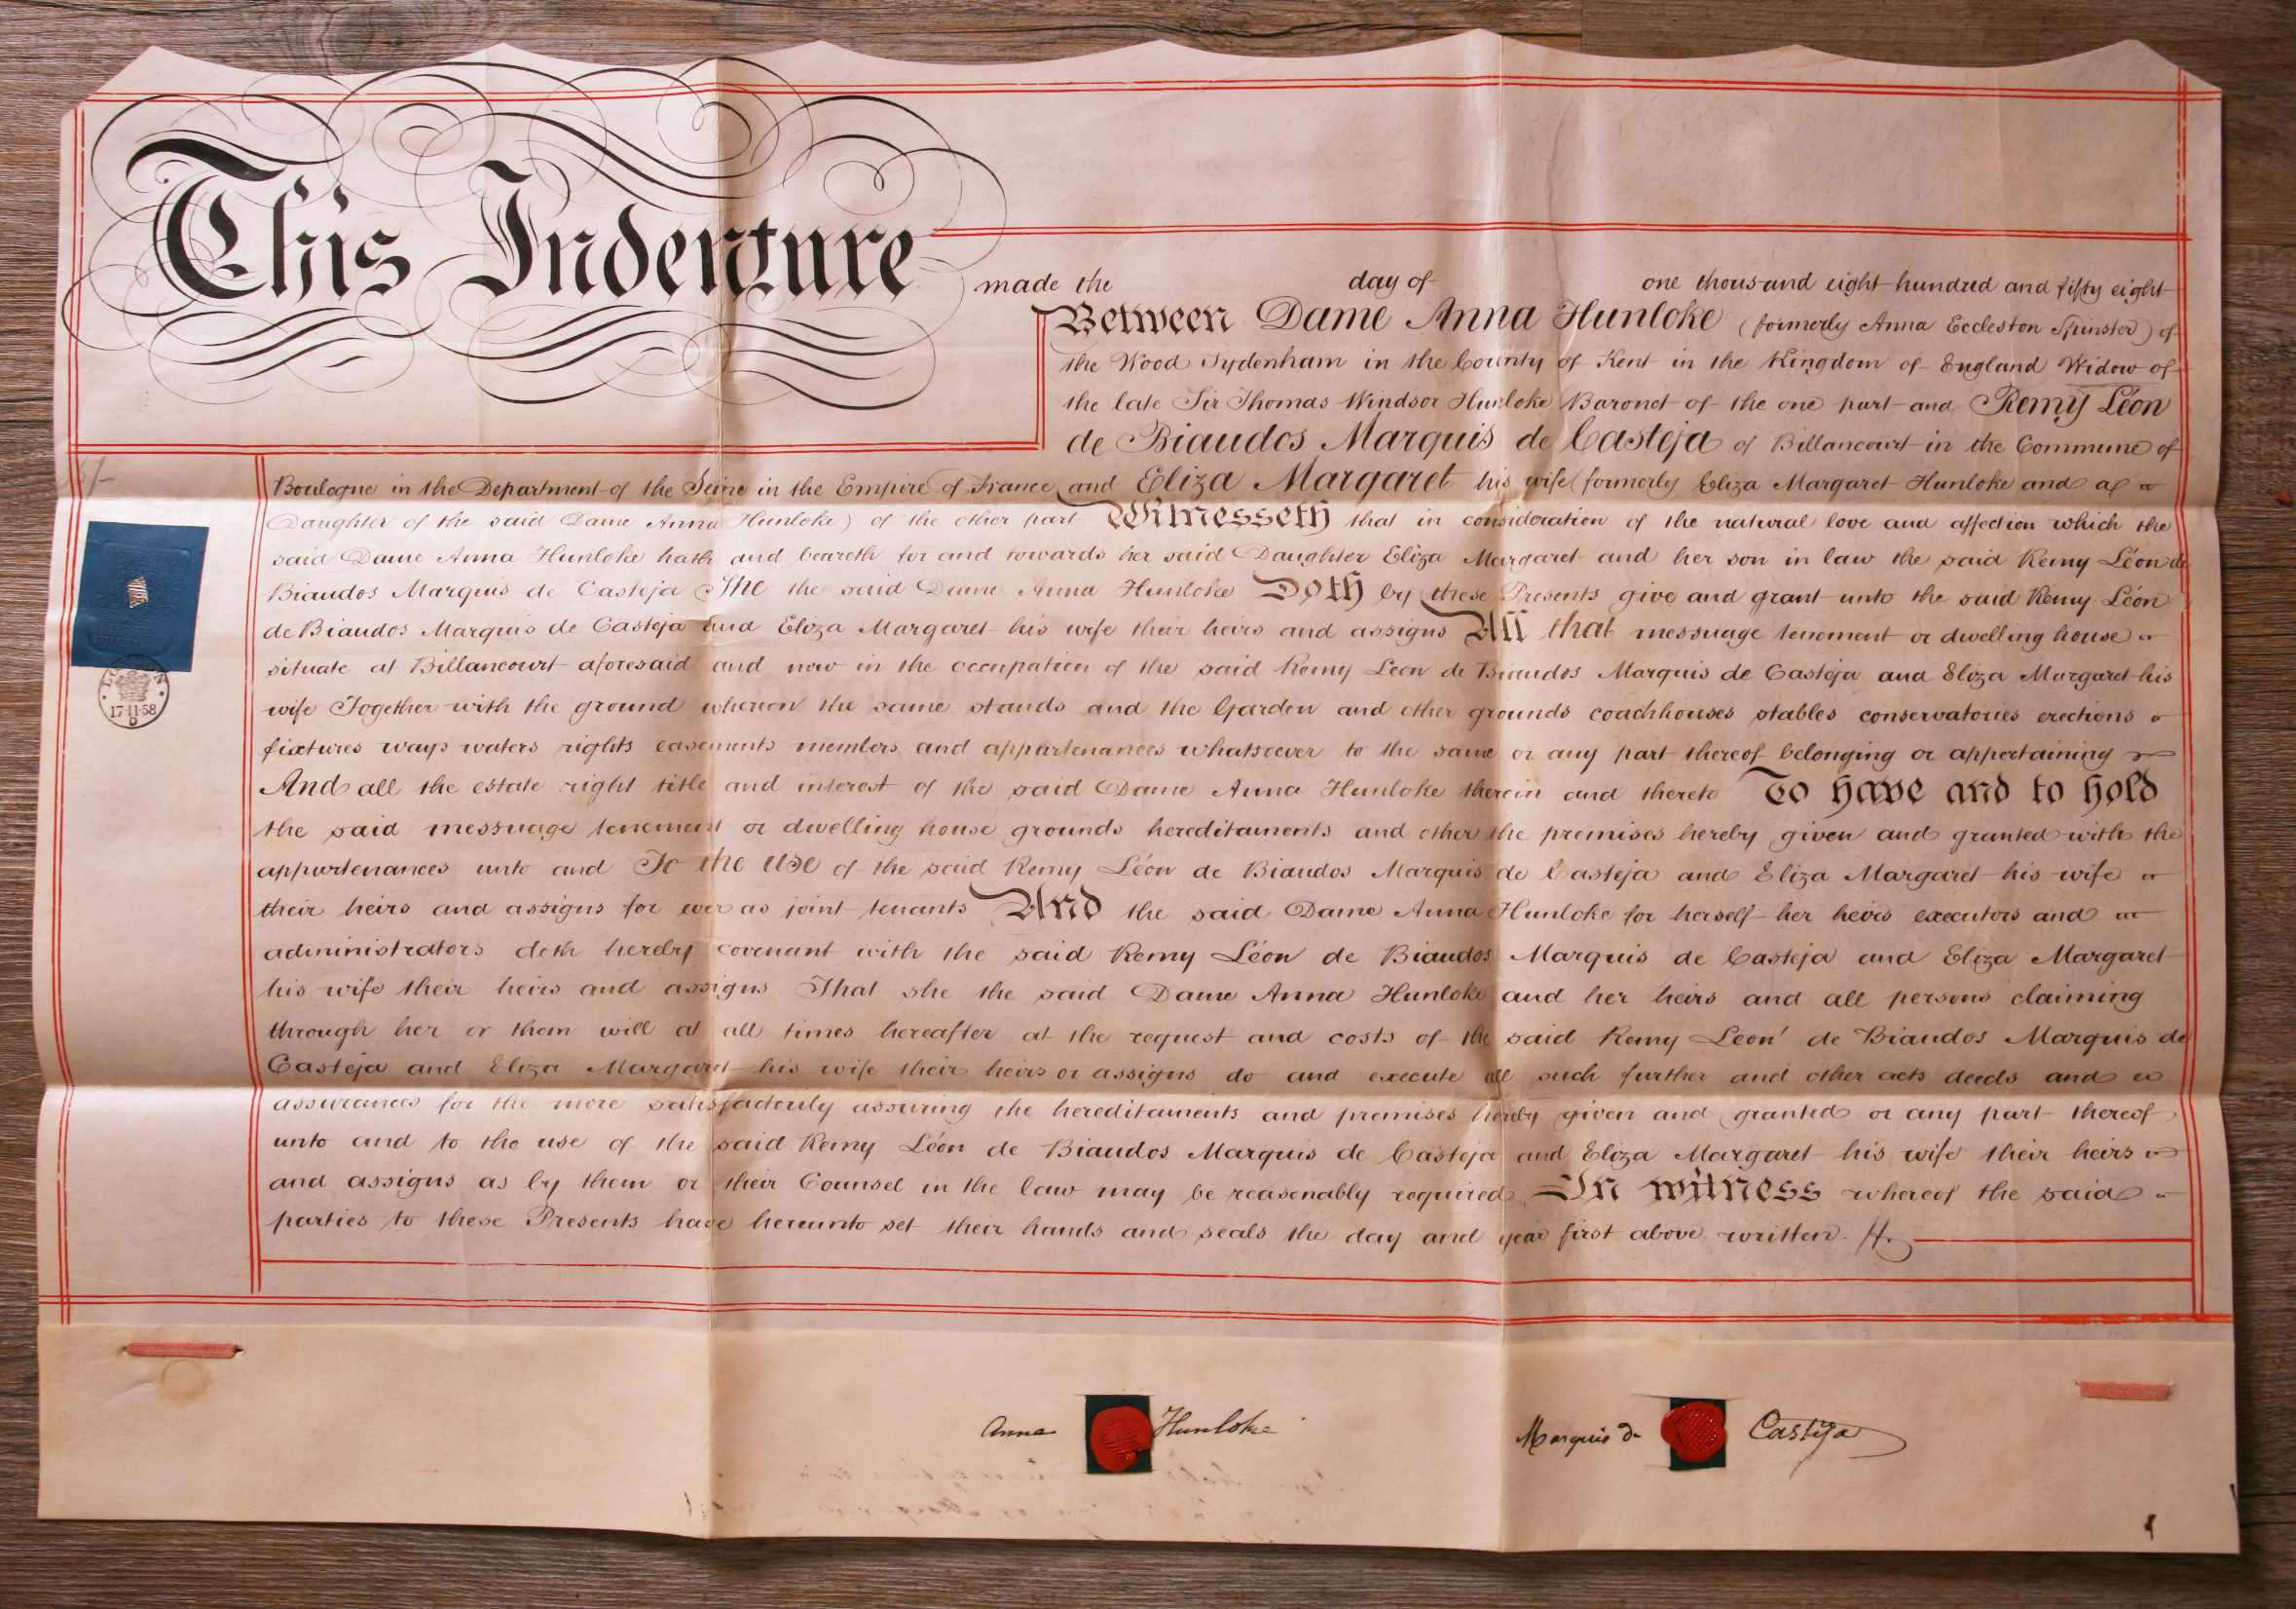 This Indenture made the day of one thousand eight hundred and fifty eight
Between Dame Anna Hunloke (formerly Anna Eccleston Spinster) of
the Wood Sydenham in the County of Kent in the Kingdom of England Widow of
the late Sir Thomas Windsor Hunloke Baronet of the one part and Remy Léon
de Biaudos Marquis de Casteja of Billancourt in the Commune of
Boulogne in the Department of the Seine in the Empire of France and Eliza Margaret his wife (formerly Eliza Margaret Hunloke and a
Daughter of the said Dame Anna Hunloke) of the other part Witnesseth that in consideration of the natural love and affection which the
said Dame Anna Hunloke hath and beareth for and towards her said Daughter Eliza Margaret and her son in law the said Remy Léon de
Biaudos Marquis de Casteja She the said Dame Anna Hunloke Doth by these Presents give and grant unto the said Remy Léon
de Biaudos Marquis de Casteja and Eliza Margaret his wife their heirs and assigns All that messuage tenement or dwelling house
situate at Billancourt aforesaid and now in the occupation of the said Remy Leon de Biaudos Marquis de Casteja and Eliza Margaret his
wife Together with the ground whereon the same stands and the Garden and other grounds coachhouses stables conservatories erections
fixtures ways waters rights easements members and appurtenances whatsoever to the same or any part thereof belonging or appertaining
And all the estate right title and interest of the said Dame Anna Hunloke therein and thereto To have and to hold
the said messuage tenement or dwelling house grounds hereditaments and other the premises hereby given and granted with the
appurtenances unto and To the use of the said Remy Léon de Biaudos Marquis de Casteja and Eliza Margaret his wife
their heirs and assigns for ever as joint tenants And the said Dame Anna Hunloke for herself her heirs executors and
administrators doth hereby covenant with the said Remy Léon de Biaudos Marquis de Casteja and Eliza Margaret
his wife their heirs and assigns That she the said Dame Anna Hunloke and her heirs and all persons claiming
through her or them will at all times hereafter at the request and costs of the said Remy Leon de Biaudos Marquis de
Casteja and Eliza Margaret his wife their heirs or assigns do and execute all such further and other acts deeds and
assurances for the more satisfactorily assuring the hereditaments and premises hereby given and granted or any part thereof
unto and to the use of the said Remy Léon de Biaudos Marquis de Casteja and Eliza Margaret his wife their heirs
and assigns as by them or their Counsel in the law may be reasonably required In witness whereof the said
parties to these Presents have hereunto set their hands and seals the day and year first above written.
17·11·58
D
Anna Hunloke
Marquis de Casteja